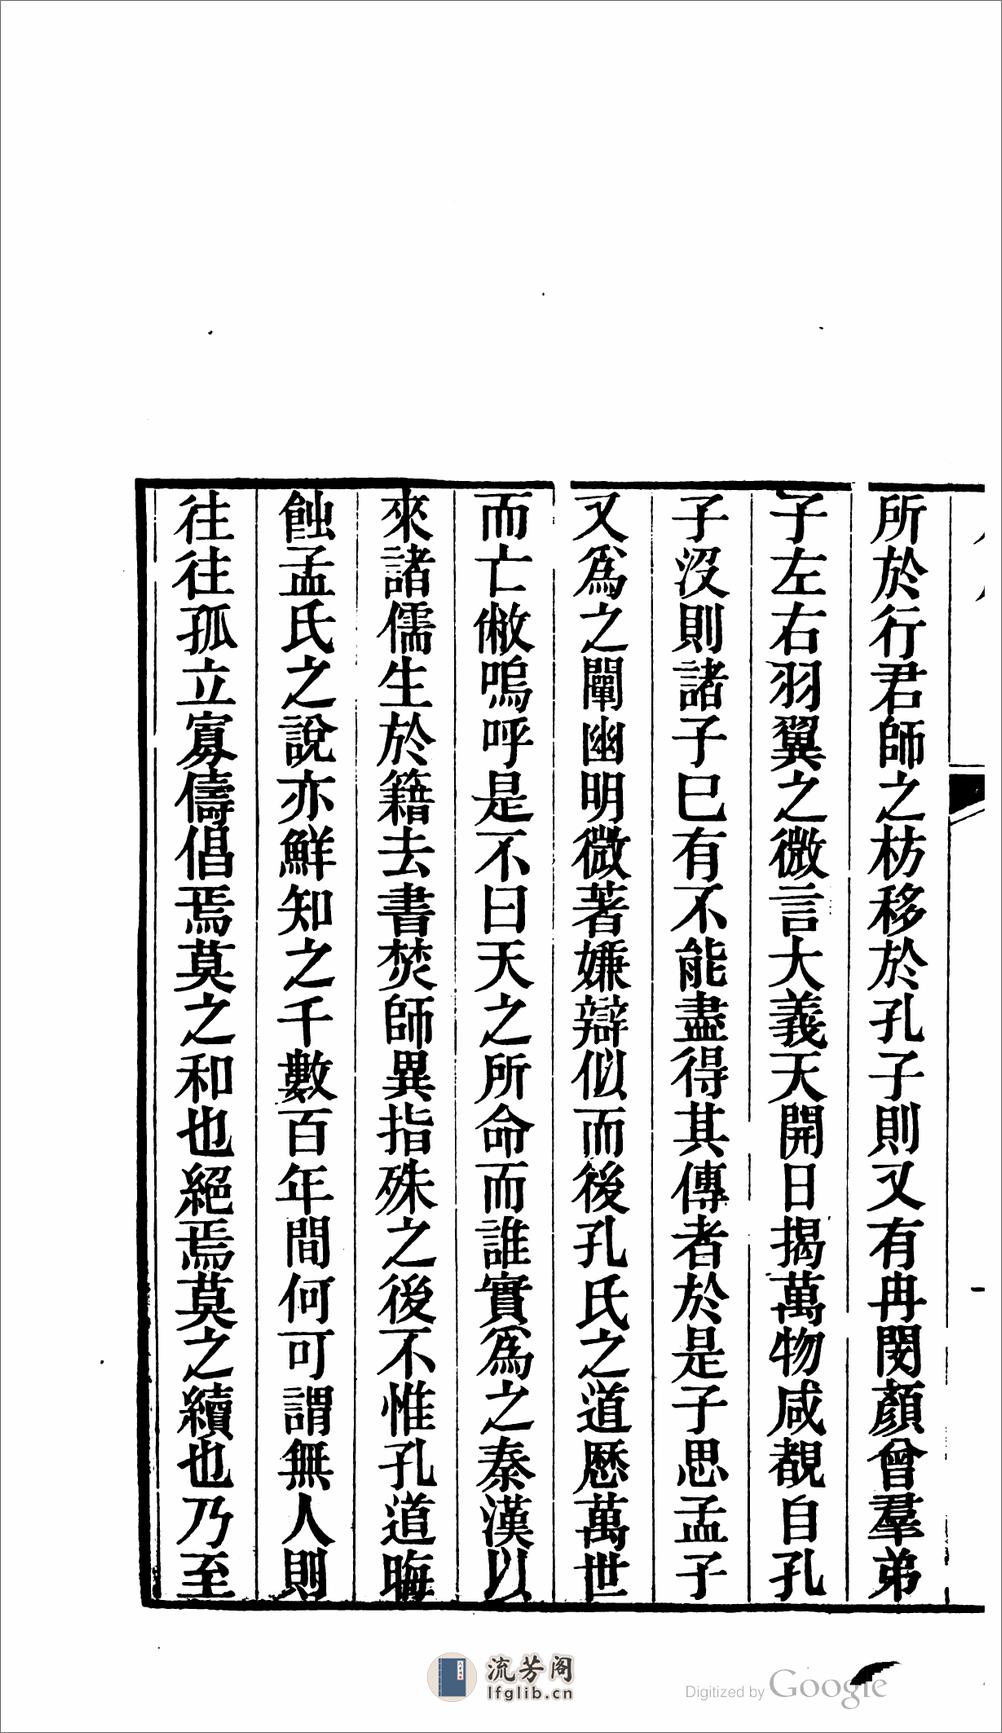 所於行君師之枋移於孔子則又有冉閔顏曾羣弟
子左右羽翼之微言大義天開日揭萬物咸覩自孔
子沒則諸子已有不能盡得其傳者於是子思孟子
又爲之闡幽明微著嫌辯似而後孔氏之道歷萬世
而亡敝嗚呼是不曰天之所命而誰實爲之秦漢以
來諸儒生於籍去書焚師異指殊之後不惟孔道晦
蝕孟氏之說亦鮮知之千數百年間何可謂無人則
往往孤立寡儔倡焉莫之和也絕焉莫之續也乃至
流芳阁
lfglib.cn
Digitized by Google